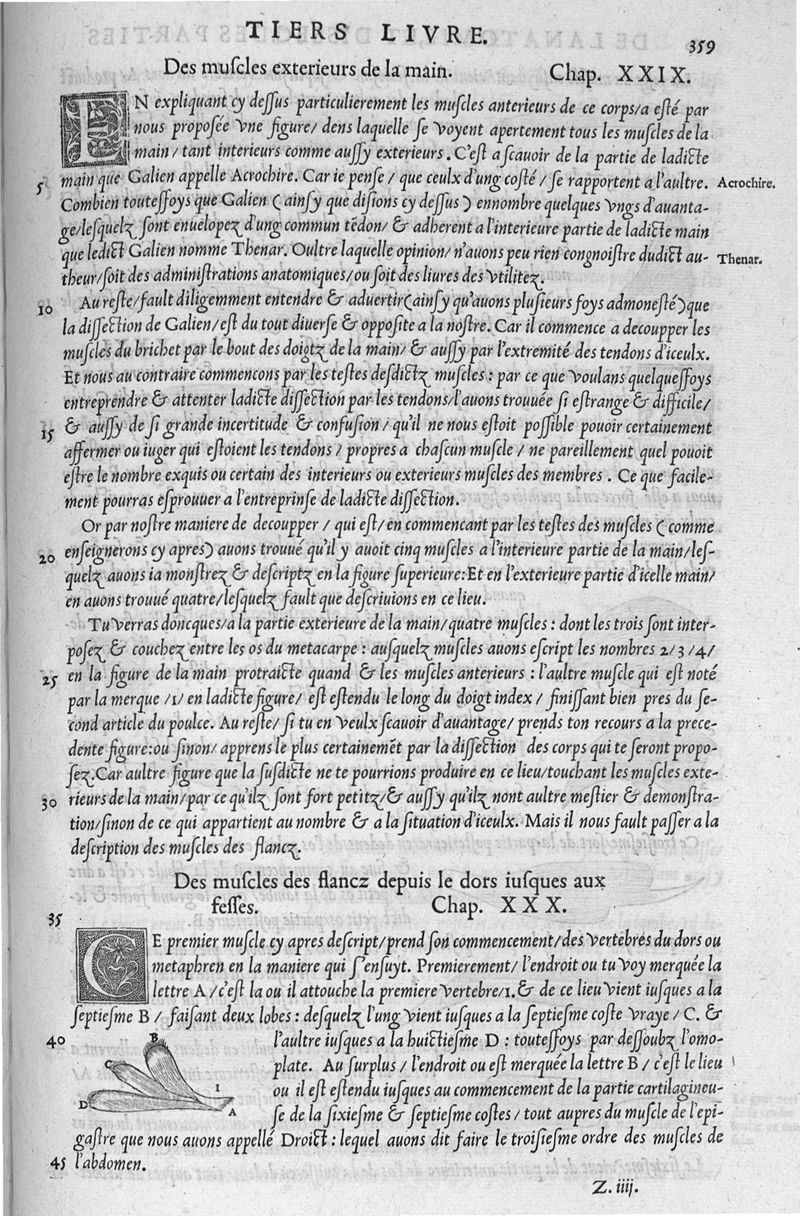 TIERS LIVRE.
359
Des muſcles exterieurs de la main. Chap. XXIX.
EN expliquant cy deſſus particulierement les muſcles anterieurs de ce corps/a eſté par
nous propoſée vne figure/ dens laquelle ſe voyent apertement tous les muſcles de la
main/ tant interieurs comme auſſy exterieurs. C'eſt a ſcauoir de la partie de ladicte
5 main que Galien appelle Acrochire. Car ie penſe/ que ceulx d'ung coſté/ ſe rapportent a l'aultre. Acrochire.
Combien touteſſoys que Galien (ainſy que diſions cy deſſus) ennombre quelques vngs d'auanta-
ge/leſquelz ſont enuelopez d'ung commun tēdon/ & adherent a l'interieure partie de ladicte main
que ledict Galien nomme Thenar. Oultre laquelle opinion/ n'auons peu rien congnoiſtre dudict au- Thenar.
theur/ſoit des adminiſtrations anatomiques/ou ſoit des liures des vtilitez.
10 Au reſte/fault diligemment entendre & aduertir(ainſy qu'auons pluſieurs foys admoneſté)que
la diſſection de Galien/eſt du tout diuerſe & oppoſite a la noſtre. Car il commence a decoupper les
muſcles du brichet par le bout des doigtz de la main/ & auſſy par l'extremité des tendons d'iceulx.
Et nous au contraire commencons par les teſtes deſdictz muſcles: par ce que voulans quelqueſſoys
entreprendre & attenter ladicte diſſection par les tendons/l'auons trouuée ſi eſtrange & difficile/
15 & auſſy de ſi grande incertitude & confuſion/ qu'il ne nous eſtoit poſſible pouoir certainement
affermer ou iuger qui eſtoient les tendons/ propres a chaſcun muſcle/ ne pareillement quel pouoit
eſtre le nombre exquis ou certain des interieurs ou exterieurs muſcles des membres. Ce que facile-
ment pourras eſprouuer a l'entreprinſe de ladicte diſſection.
Or par noſtre maniere de decoupper/ qui eſt/en commencant par les teſtes des muſcles (comme
20 enſeignerons cy apres) auons trouué qu'il y auoit cinq muſcles a l'interieure partie de la main/leſ-
quelz auons ia monſtrez & deſcriptz en la figure ſuperieure:Et en l'exterieure partie d'icelle main/
en auons trouué quatre/leſquelz fault que deſcriuions en ce lieu.
Tu verras doncques/a la partie exterieure de la main/quatre muſcles: dont les trois ſont inter-
poſez & couchez entre les os du metacarpe: auſquelz muſcles auons eſcript les nombres 2/3/4/
25 en la figure de la main protraicte quand & les muſcles anterieurs: l'aultre muſcle qui eſt noté
par la merque /1/ en ladicte figure/ eſt eſtendu le long du doigt index/ finiſſant bien pres du ſe-
cond article du poulce. Au reſte/ ſi tu en veulx ſcauoir d'auantage/ prends ton recours a la prece-
dente figure:ou ſinon/ apprens le plus certainemēt par la diſſection des corps qui te ſeront propo-
ſez.Car aultre figure que la ſuſdicte ne te pourrions produire en ce lieu/touchant les muſcles exte-
30 rieurs de la main/par ce qu'ilz ſont fort petitz/& auſſy qu'ilz nont aultre meſtier & demonſtra-
tion/ſinon de ce qui appartient au nombre & a la ſituation d'iceulx. Mais il nous fault paſſer a la
deſcription des muſcles des flancz.
Des muſcles des flancz depuis le dors iuſques aux
35 feſſes. Chap. XXX.
CE premier muſcle cy apres deſcript/prend ſon commencement/des vertebres du dors ou
metaphren en la maniere qui ſ'enſuyt. Premierement/ l'endroit ou tu voy merquée la
lettre A/c'eſt la ou il attouche la premiere vertebre/1.& de ce lieu vient iuſques a la
ſeptieſme B/ faiſant deux lobes: deſquelz l'ung vient iuſques a la ſeptieſme coſte vraye/ C. &
40 l'aultre iuſques a la huictieſme D: touteſſoys par deſſoubz l'omo-
plate. Au ſurplus/ l'endroit ou eſt merquée la lettre B/ c'eſt le lieu
ou il eſt eſtendu iuſques au commencement de la partie cartilagineu-
ſe de la ſixieſme & ſeptieſme coſtes/ tout aupres du muſcle de l'epi-
gaſtre que nous auons appellé Droict: lequel auons dit faire le troiſieſme ordre des muſcles de
45 l'abdomen.
B
C
D
1
A
Z. iiij.